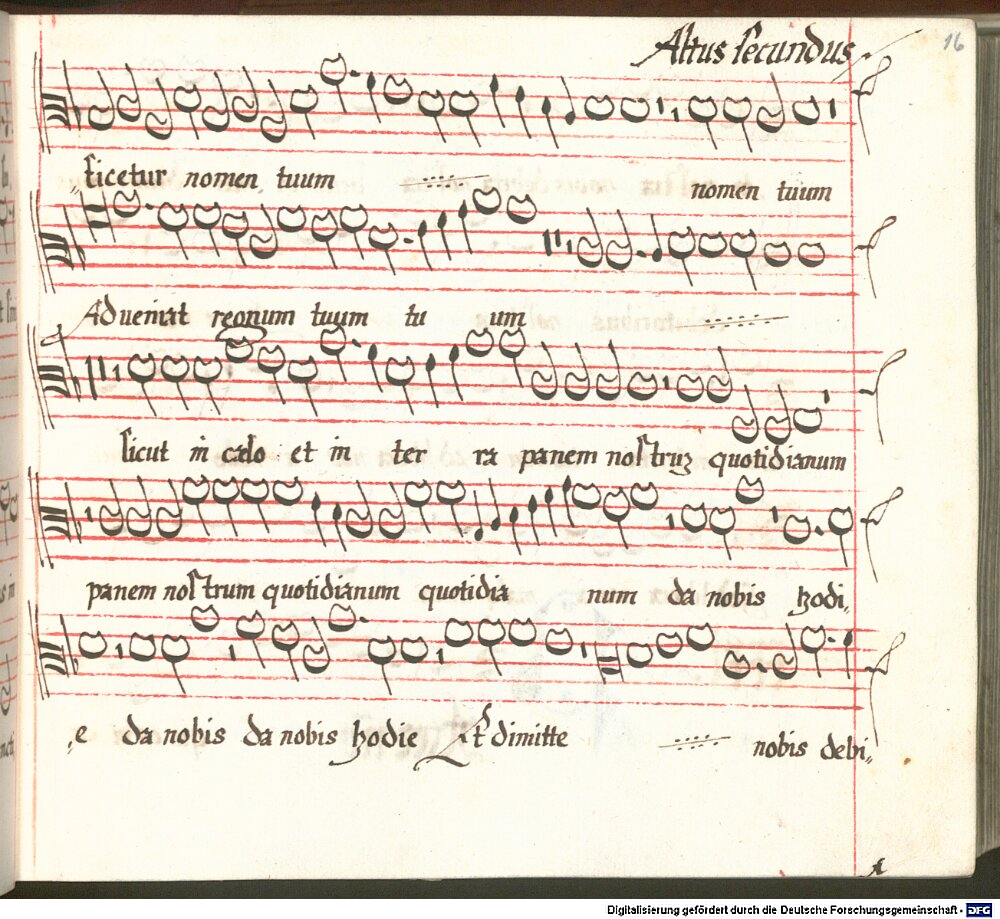 Altus secundus
16
ficetur nomen tuum nomen tuum
Adueniat regnum tuum tu um
sicut in cælo et in ter ra panem nostrum quotidianum
panem nostrum quotidianum quotidia num da nobis hodi,,
,,e da nobis da nobis hodie Et dimitte nobis debi,,
Digitalisierung gefördert durch die Deutsche Forschungsgemeinschaft - DFG